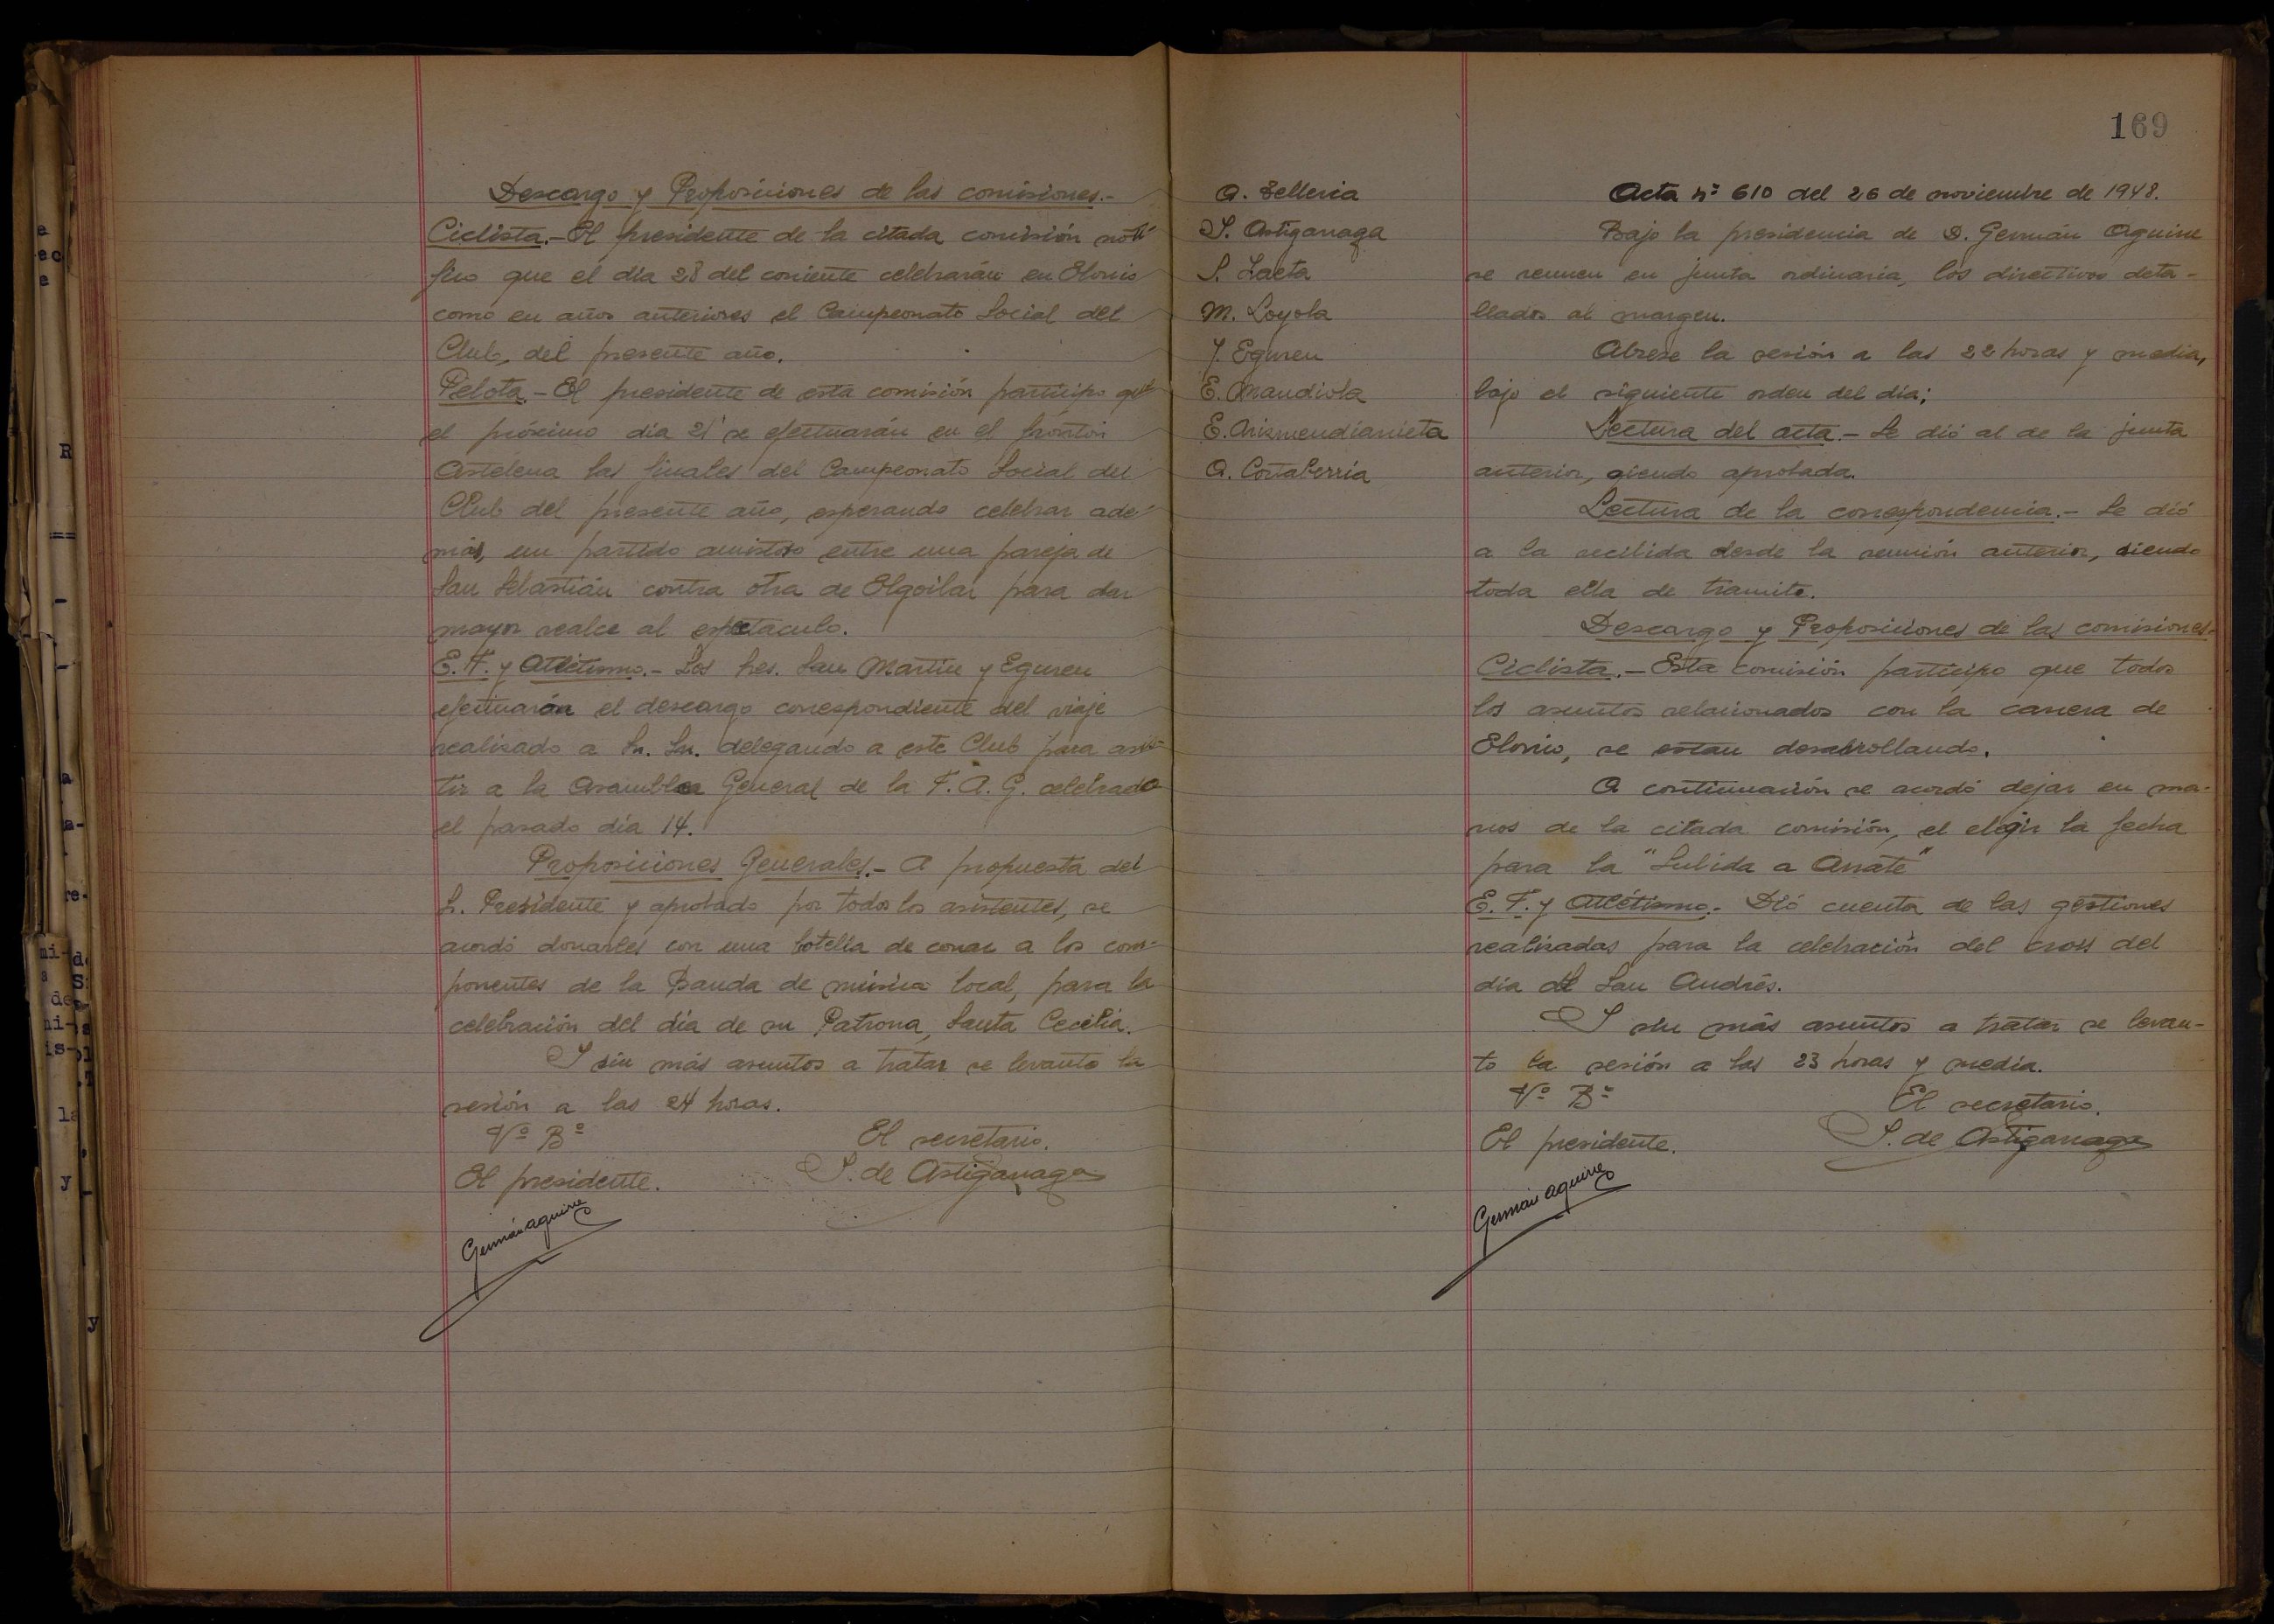 Descargo y Proposiciones de las comisiones.-
Ciclista.- El presidente de la citada comisión noti-
fico que el día 28 del corriente celebrarán en Elorrio
como en años anteriores el Campeonato Social del
Club, del presente año.
Pelota.- El presidente de esta comisión participo que
el próximo día 21 se efectuarán en el frontón
Astelena las finales del Campeonato Social del
Club del presente año, esperando celebrar ade-
más, un partido amistoso entre una pareja de
San Sebastián contra otra de Elgoibar para dar
mayor realce al espectaculo.
E. F. y Atlétismo.- Los Sres. San Martin y Eguren
efectuarón el descargo correspondiente del viaje
realizado a Sn. Sn. delegando a este Club para asis-
tir a la Asamblea General de la F. A. G. celebrada
el pasado día 14.
Proposiciones Generales.- A propuesta del
Sr. Presidente y aprobado por todos los asistentes, se
acordó donarles con una botella de conac a los com-
ponentes de la Banda de música local, para la
celebración del día de su Patrona, Santa Cecilia.
Y sin más asuntos a tratar se levanto la
sesión a las 24 horas.
Vº Bº El secretario.
El presidente. S. de Astiganaga
Germán Aguirre
169
A. Telleria
S. Astiganaga
S. Zaeta
M. Loyola
J. Eguren
E. Mandiola
E. Arizmendiarrieta
A. Cortaberria
Acta nº 610 del 26 de noviembre de 1948.
Bajo la presidencia de D. Germán Aguirre
se reunen en junta ordinaria, los directivos deta-
llados al margen.
Abrese la sesión a las 22 horas y media,
bajo el siguiente orden del día;
Lectura del acta.- Se dió al de la junta
anterior, siendo aprobada.
Lectura de la correspondencia.- Se dió
a la recibida desde la reunión anterior, siendo
toda ella de tramite.
Descargo y Proposiciones de las comisiones-
Ciclista.- Esta comisión participo que todos
los asuntos relacionados con la carrera de
Elorrio, se estan desarrollando.
A continuación se acordó dejar en ma-
nos de la citada comisión, el elegir la fecha
para la "Subida a Arrate"
E. F. y Atlétismo.- Dió cuenta de las gestiones
realizadas para la celebración del cross del
día de San Andrés.
Y sin más asuntos a tratar se levan-
to la sesión a las 23 horas y media.
Vº Bº El secretario.
El presidente. S. de Astiganaga
Germán Aguirre